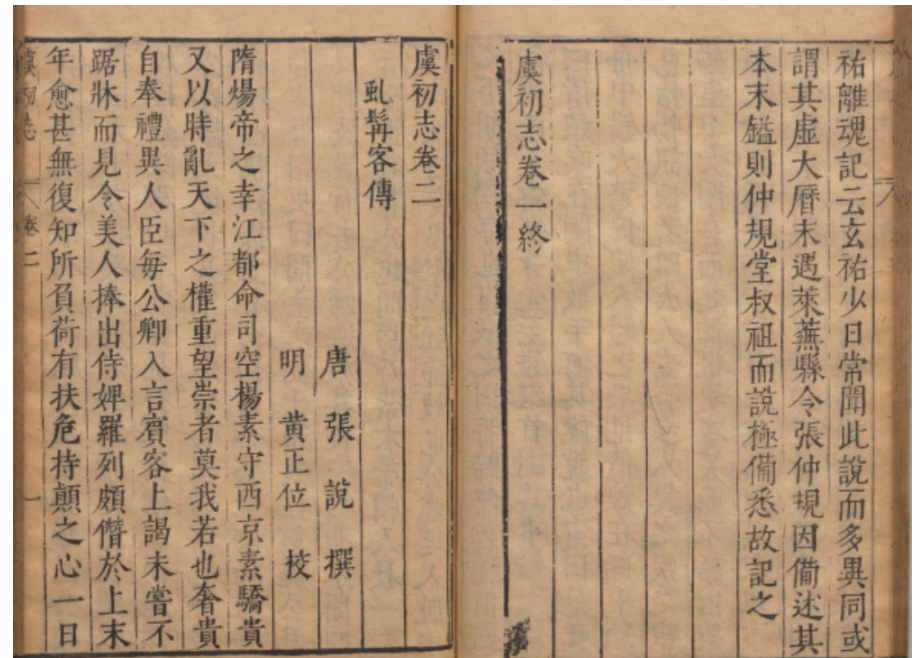 祐離魂記云玄祐少日常聞此說而多異同或
謂其虛大曆末遇萊蕪縣令張仲規因備述其
本末鎰則仲規堂叔祖而說極備悉故記之
虞初志卷一終
虞初志卷二
虬髯客傳
唐張說撰
明黃正位校
隋煬帝之幸江都命司空楊素守西京素驕貴
又以時亂天下之權重望崇者莫我若也奢貴
自奉禮異人臣每公卿入言賓客上謁未嘗不
踞牀而見令美人捧出侍婢羅列頗僭於上末
年愈甚無復知所負荷有扶危持顛之心一日
虞初志 卷二 一